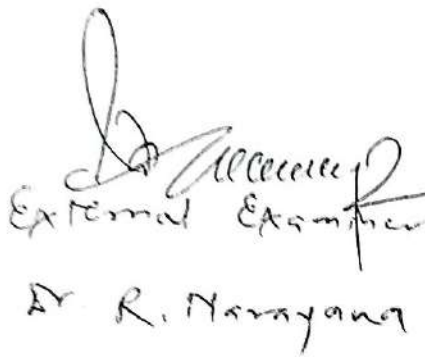 External Examiner
Dr R. Narayana